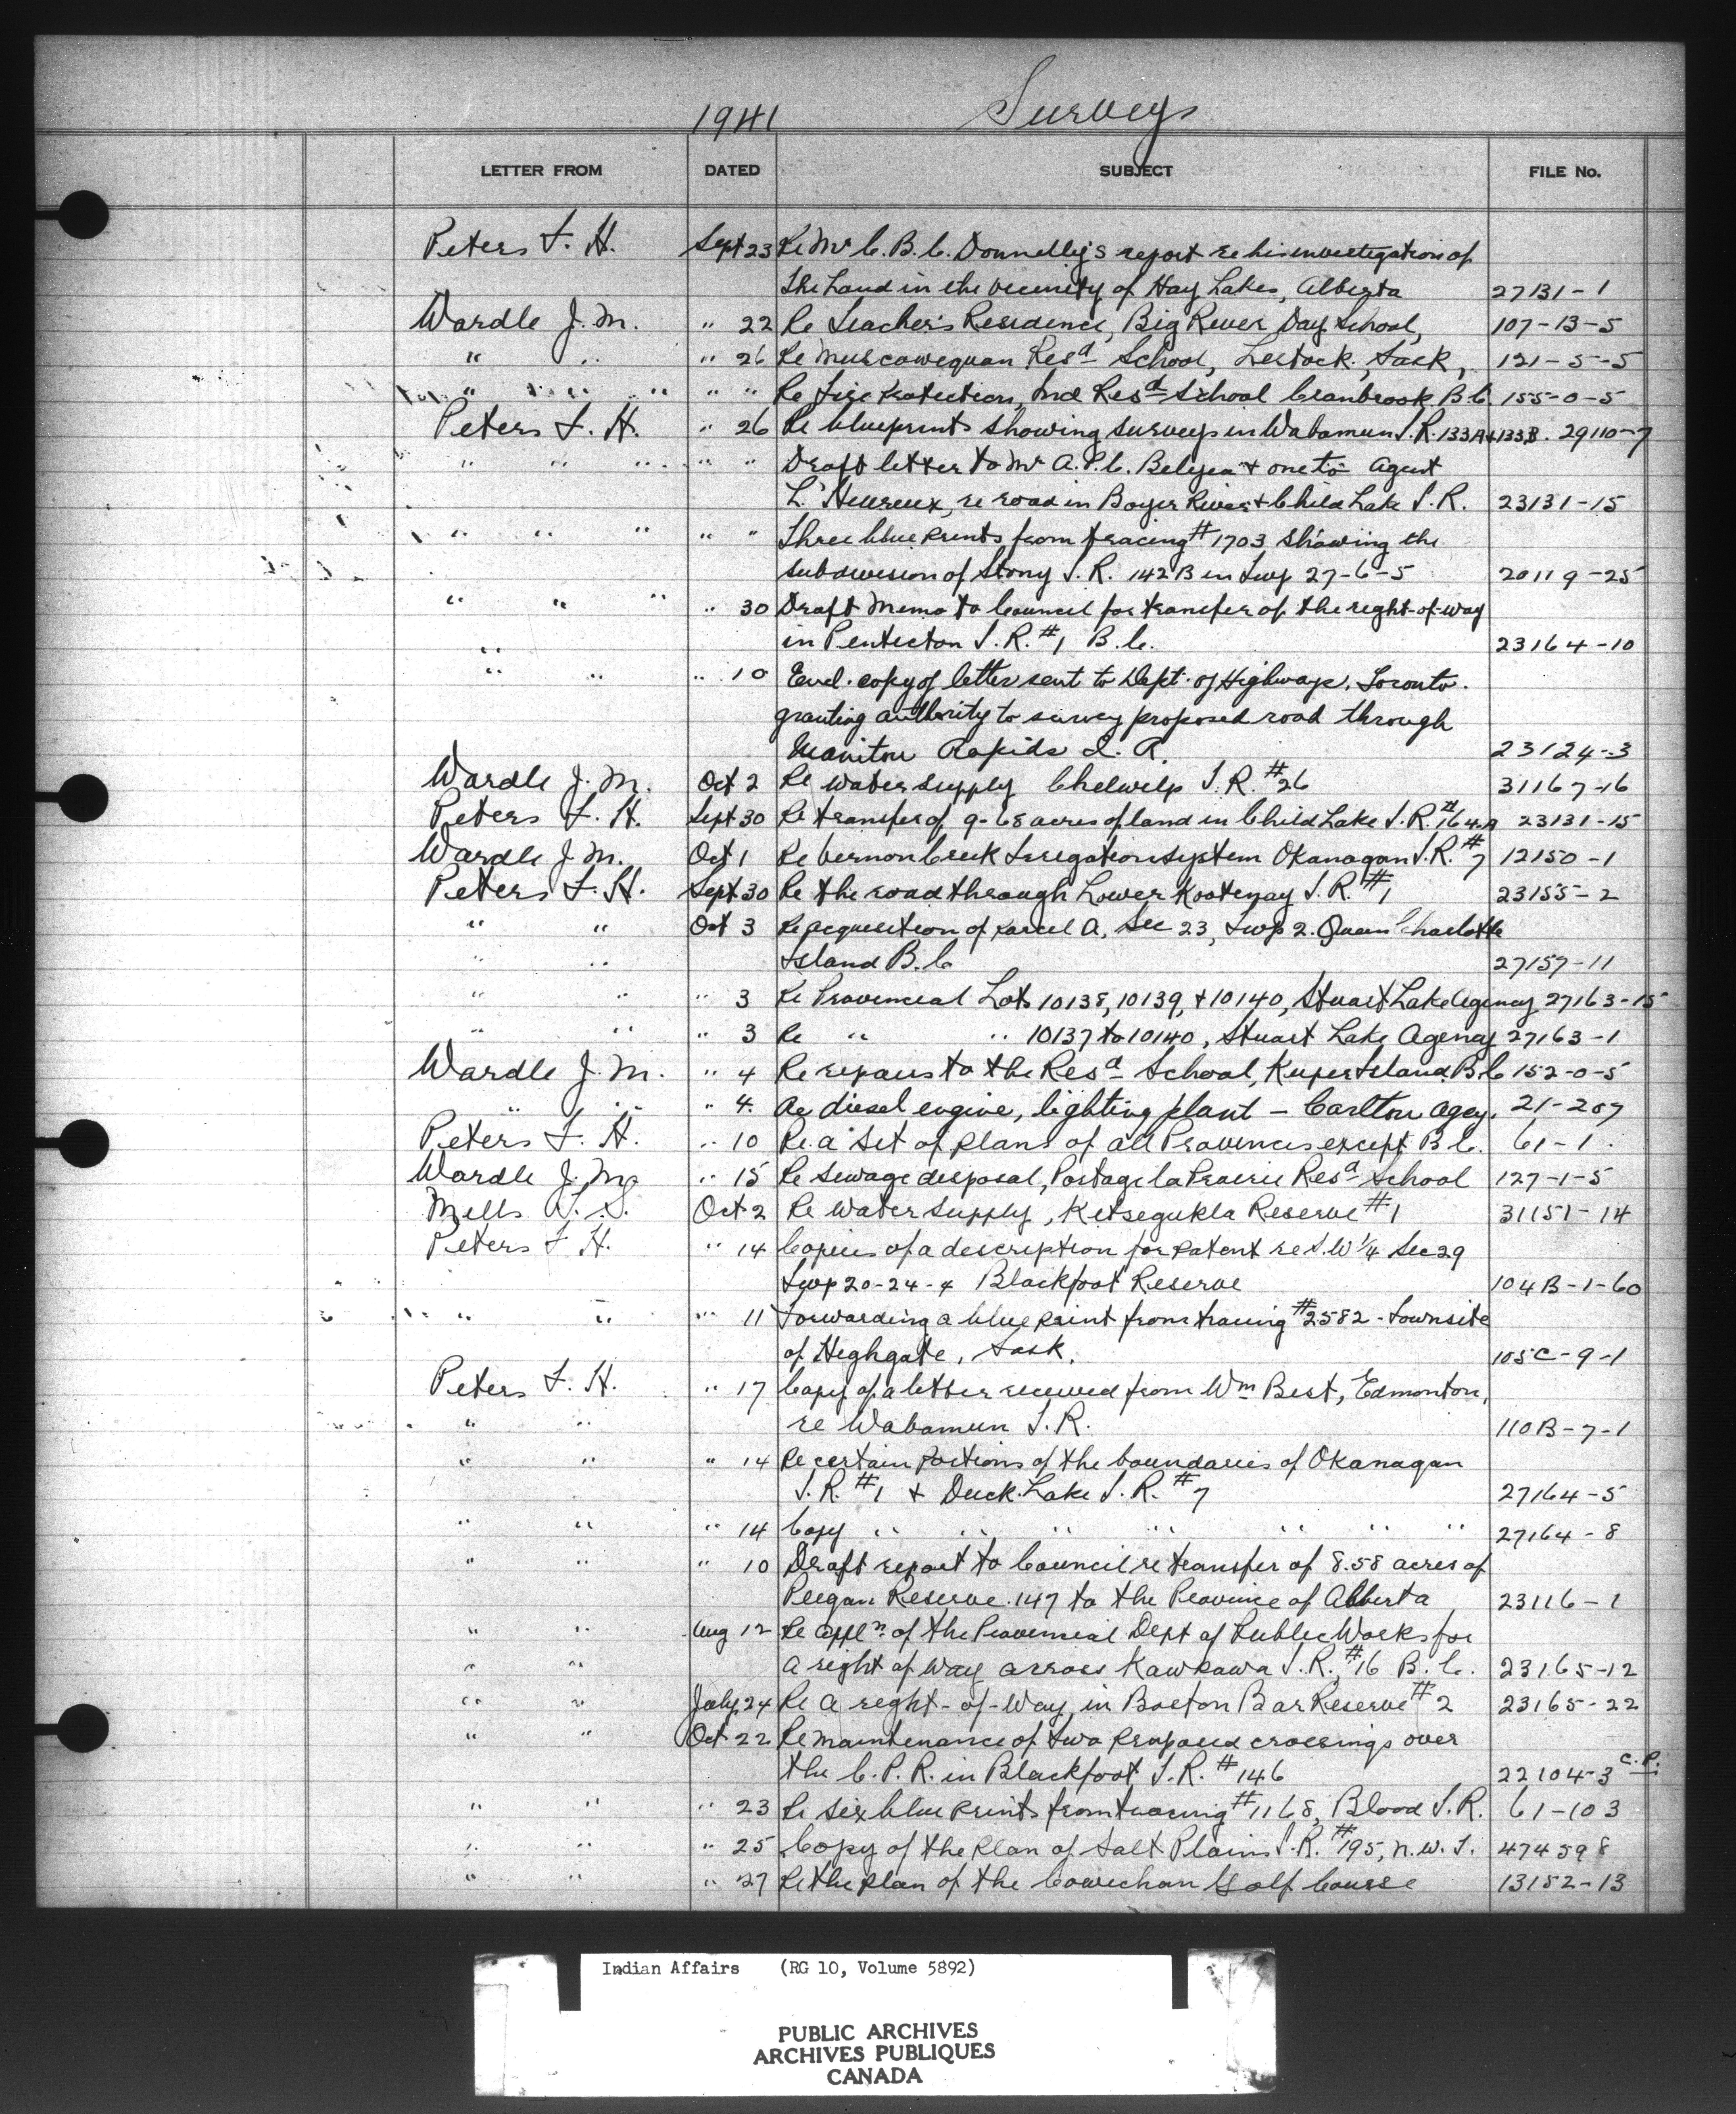 1941 Surveys
LETTER FROM DATED SUBJECT FILE No.
Peters F. H. Sept 23 Re Mr C. B. C. Donnelly's report re his investigation of
the Land in the vicinity of Hay Lakes, Alberta 27131-1
Wardle J. M. " 22 Re Teacher's Residence, Big River Day School, 107-13-5
" " " 26 Re Muscowequan Resd School, Lestock, Sask, 121-5-5
" " " " " " Re Fire Protection, Ind Resd School Cranbrook B.C. 155-0-5
Peters F. H. " 26 Re blueprints showing surveys in Wabamun I.R. 133A & 133B. 29110-7
" " " " " Draft letter to Mr A.P.C. Belyea & one to Agent
L'Heureux, re road in Boyer River & Child Lake I.R. 23131-15
" " " " " Three blue prints from tracing #1703 showing the
subdivision of Stony I.R. 142B in Twp 27-6-5 20119-25
" " " " 30 Draft Memo to Council for transfer of the right-of-way
" in Penticton I.R. #1 B.C. 23164-10
" " " 10 Encl. copy of letter sent to Dept. of Highways, Toronto.
granting authority to survey proposed road through
Manitou Rapids I. R. 23124-3
Wardle J. M. Oct 2 Re water supply Chelwilp I.R. #26 31167-16
Peters F. H. Sept 30 Re transfer of 9-68 acres of land in Child Lake I.R. #164A 23131-15
Wardle J. M. Oct 1 Re Vernon Creek Irregation System Okanagan I.R. #7 12150-1
Peters F. H. Sept 30 Re the road through Lower Kootenay I.R. #1 23155-2
" " Oct 3 Re acquisition of Parcel A, Sec 23, Twp 2. Queen Charlotte
" " Island B.C 27157-11
" " " 3 Re Provincial Lots 10138, 10139, & 10140, Stuart Lake Agency 27163-15
" " " 3 Re " " 10137 to 10140, Stuart Lake Agency 27163-1
Wardle J. M. " 4 Re repairs to the Resd School, Kuper Island B.C 152-0-5
" " " 4. Re diesel engine, lighting plant - Carlton Agcy. 21-207
Peters F. H. " 10 Re a set of plans of all Provinces except B.C. 61-1.
Wardle J. M. " 15 Re sewage disposal, Portage la Prairie Resd School 127-1-5
Mills T. S. Oct 2 Re Water Supply, Kitsegukla Reserve #1 31151-14
Peters F H. " 14 Copies of a description for Patent re S.W 1/4 Sec 29
Twp 20-24-4 Blackfoot Reserve 104B-1-60
" " " 11 Forwarding a blue print from tracing #2582 - Townsite
of Highgate, Sask. 105C-9-1
Peters F. H. " 17 Copy of a letter received from Wm Best, Edmonton,
" " re Wabamun I.R. 110B-7-1
" " " 14 Re certain Portions of the boundaries of Okanagan
I.R. #1 & Duck Lake I.R. #7 27164-5
" " " 14 Copy " " " " " " " 27164-8
" " " 10 Draft report to Council re transfer of 8.58 acres of
Peegan Reserve 147 to the Province of Alberta 23116-1
" " Aug 12 Re appln. of the Provincial Dept of Public Works for
" " a right of way across Kawkawa I.R., #16 B.C. 23165-12
" " July 24 Re a right-of-way, in Boston Bar Reserve #2 23165-22
" " Oct 22 Re maintenance of two proposed crossings over
the C.P.R. in Blackfoot I.R. #146 22104-3 C.P.
" " " 23 Re six blue prints from tracing #1168, Blood I.R. 61-103
" " " 25 Copy of the Plan of Salt Plains I.R. #195, N.W.T. 474598
" " " 27 Re the plan of the Cowichan Golf Course 13152-13
Indian Affairs (RG 10, Volume 5892)
PUBLIC ARCHIVES
ARCHIVES PUBLIQUES
CANADA